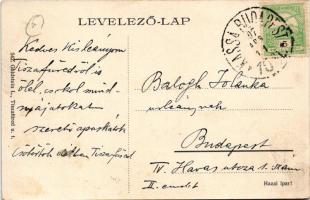 LEVELEZŐ-LAP
Kedves Kis leányom
Tiszafüredről is
ölel, csókol mind-
nyájatokat
szerető apuskátok
Csütörtök délben Tiszafüred
Balogh Jolánka
urleánynak
Budapest
IV. Havas utcza 1. szám
II. emelet
Hazai ipar!
KASSA BUDAPEST